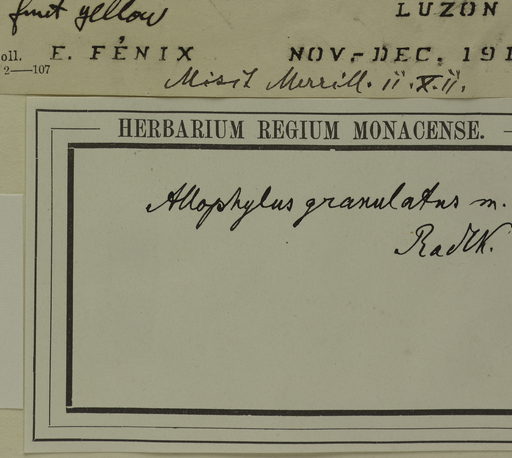 fruit yellow
LUZON
oll. E. FÉNIX NOV.-DEC. 191
2—107
Misit Merrill. ii.X.ii.
HERBARIUM REGIUM MONACENSE.
Allophylus granulatus m.
Radlk.